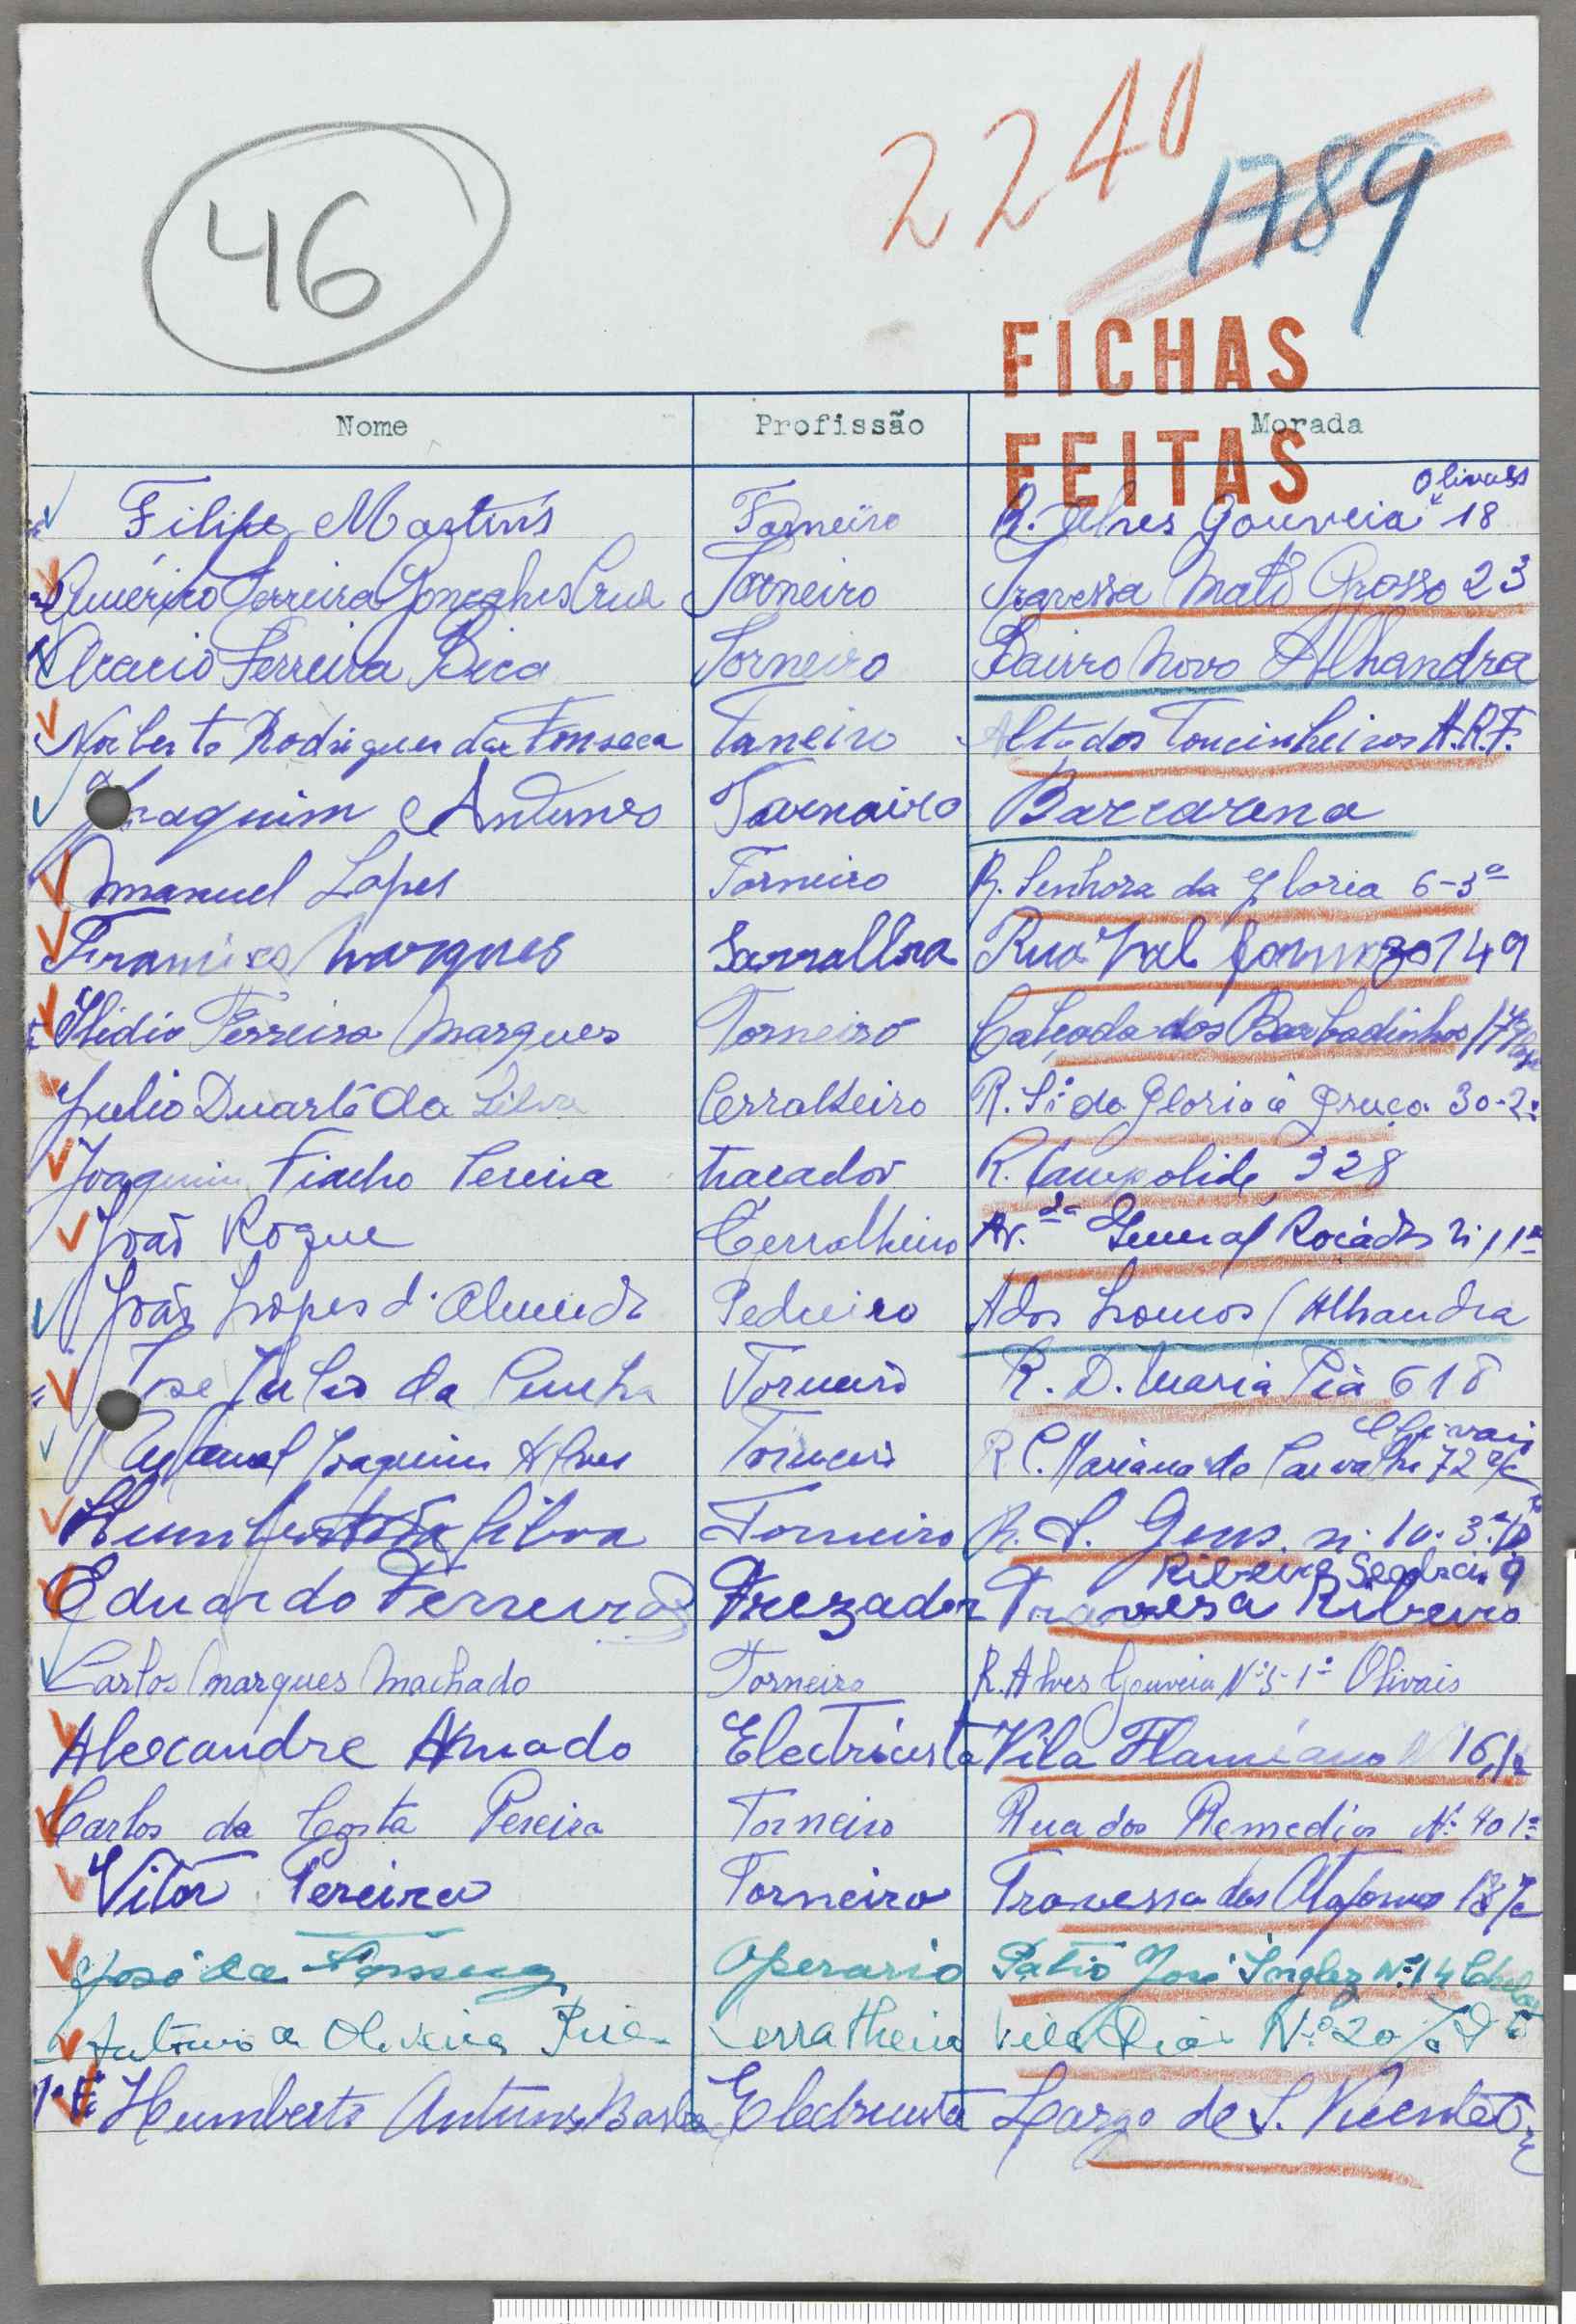 46
2240
1789
FICHAS
FEITAS
Nome Profissão Morada
Olivais
Filipe Martins Torneiro R. Alves Gouveia 18
Américo Ferreira Gonçalves Cruz Torneiro Travessa Mato Grosso 23
Acacio Ferreira Bica Torneiro Bairro Novo Alhandra
Norberto Rodrigues da Fonseca Taneiro Alto dos Toucinheiros A.R.F.
Joaquim Antunes Torneiro Barcarena
Manuel Lopes Torneiro R. Senhora da Gloria 6-3º
Francisco Marques Rua Val formozo 149
Ilidio Ferreira Marques Torneiro Calçada dos Barbadinhos
Julio Duarte da Silva Cerralheiro R. Sª da Gloria á Graça 30-2º
Joaquim Fialho Pereira tracador R. Campolide 328
João Roque Cerralheiro Av. General Roçadas
João Lopes d'Almeida Pedreiro A dos Loucos (Alhandra
José Julio da Cunha Torneiro R. D. Maria Pia 618
Olivais
Manuel Joaquim Alves Torneiro R C. Mariano de Carvalho 72 r/c
Humberto da Silva Torneiro R. S. Gens. n. 10. 3º
9
Eduardo Ferreira Frezador Travessa Ribeiro
Carlos Marques Machado Torneiro R. Alves Gouveia Nº 5-1º Olivais
Alexandre Amado Electricista Vila Flamiano 16
Carlos da Costa Pereira Torneiro Rua dos Remedios Nº 40 1º
Vitor Pereira Torneiro Travessa das Atafonas 18
José da Fonseca Operario Patio José Inglez Nº 14 Chelas
Antonio de Oliveira Cerralheiro Vila Dias Nº 20
Humberto Antunes Electricista Largo de S. Vicente